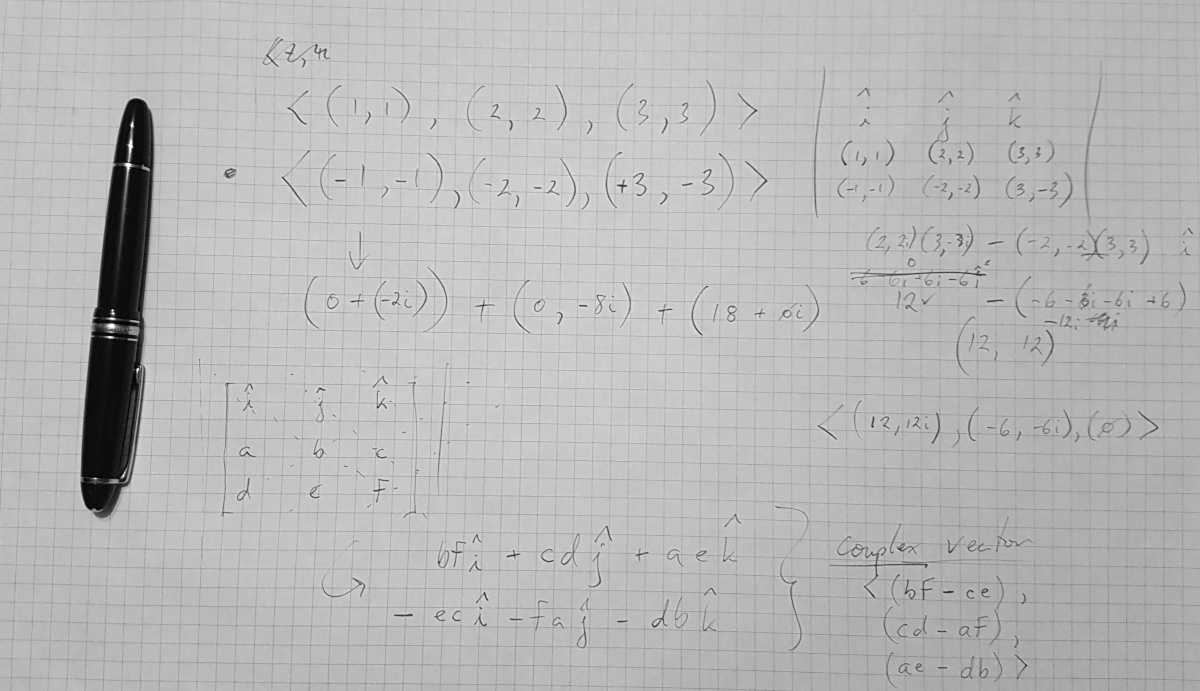 < (1, 1) , (2, 2) , (3, 3) >
• < (-1, -1), (-2, -2), (+3, -3) >
↓
(0 + (-2i)) + (0, -8i) + (18 + 0i)
î ĵ k̂
(1, 1) (2, 2) (3, 3)
(-1, -1) (-2, -2) (3, -3)
(2, 2i)(3, -3i) - (-2, -2)(3, 3) î
0
12 - (-6 - 6i - 6i + 6)
-12i
(12, 12)
< (12, 12i), (-6, -6i), (0) >
î ĵ k̂
a b c
d e f
bf î + cd ĵ + ae k̂
- ec î - fa ĵ - db k̂
complex vector
< (bf - ce),
(cd - af),
(ae - db) >